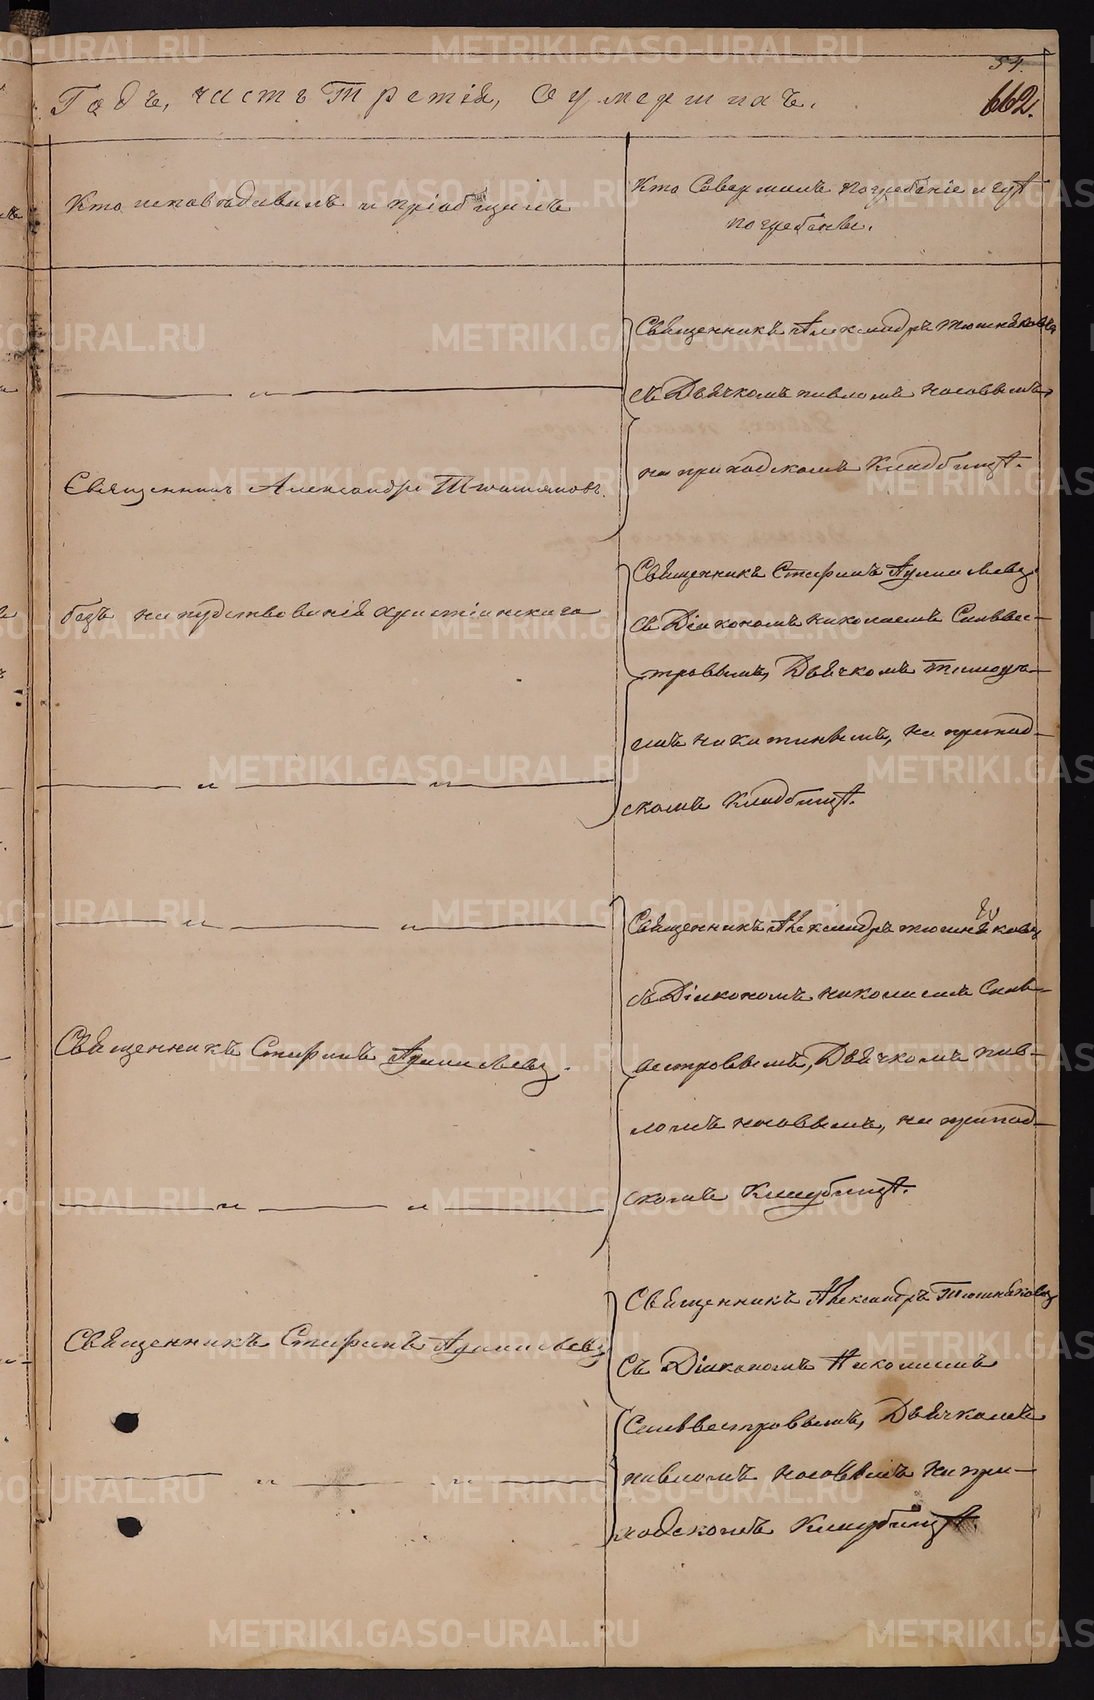 54.
662.
Годъ, часть Третія, О умершихъ.
Кто исповѣдывалъ и пріобщилъ
Кто Совершалъ погребеніе и гдѣ
погребены.
Священникъ Александръ Тюшняковъ
съ Дьячкомъ Павломъ Носовымъ,
на приходскомъ Кладбищѣ.
Священникъ Александръ Тюшняковъ.
безъ напутствованія христіанскаго
Священникъ Стефанъ
съ Діакономъ Николаемъ Сильвес-
тровымъ, Дьячкомъ Тимофѣ-
емъ Никитинымъ, на приход-
скомъ Кладбищѣ.
Священникъ Александръ Тюшняковъ
съ Діакономъ Николаемъ Сильв-
естровымъ, Дьячкомъ Пав-
ломъ Носовымъ, на приход-
скомъ Кладбищѣ.
Священникъ Стефанъ
Священникъ Александръ Тюшняковъ
Съ Діакономъ Николаемъ
Сильвестровымъ, Дьячкомъ
Павломъ Носовымъ на при-
ходскомъ Кладбищѣ.
Священникъ Стефанъ
METRIKI.GASO-URAL.RU